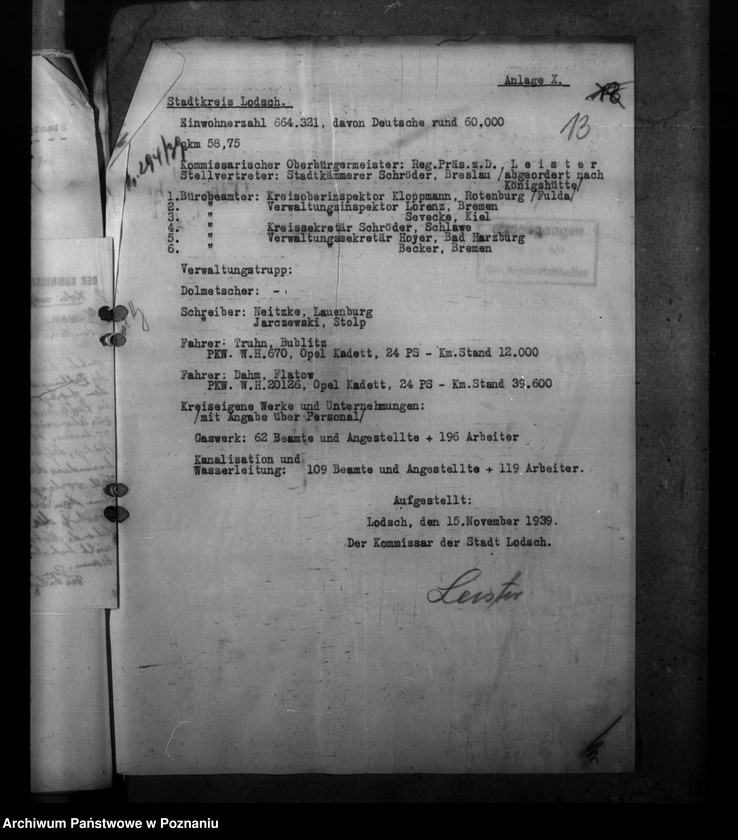 Anlage X.
13
Stadtkreis Lodsch.
Einwohnerzahl 664.321, davon Deutsche rund 60.000
qkm 58,75
Kommissarischer Oberbürgermeister: Reg.Präs.z.D. L e i s t e r
Stellvertreter: Stadtkämmerer Schröder, Breslau /abgeordert nach
Königshütte/
1.Bürobeamter: Kreisoberinspektor Kloppmann, Rotenburg /Fulda/
2. " Verwaltungsinspektor Lorenz, Bremen
3. " " Sevecke, Kiel
4. " Kreissekretär Schröder, Schlawe
5. " Verwaltungssekretär Hoyer, Bad Harzburg
6. " " Becker, Bremen
Verwaltungstrupp:
Dolmetscher: -
Schreiber: Neitzke, Lauenburg
" Jarczewski, Stolp
Fahrer: Truhn, Bublitz
PKW. W.H.670, Opel Kadett, 24 PS - Km.Stand 12.000
Fahrer: Dahm, Flatow
PKW. W.H.20126, Opel Kadett, 24 PS - Km.Stand 39.600
Kreiseigene Werke und Unternehmungen:
/mit Angabe über Personal/
Gaswerk: 62 Beamte und Angestellte + 196 Arbeiter
Kanalisation und
Wasserleitung: 109 Beamte und Angestellte + 119 Arbeiter.
Aufgestellt:
Lodsch, den 15.November 1939.
Der Kommissar der Stadt Lodsch.
Leister
DER KOMMISSAR
Archiwum Państwowe w Poznaniu